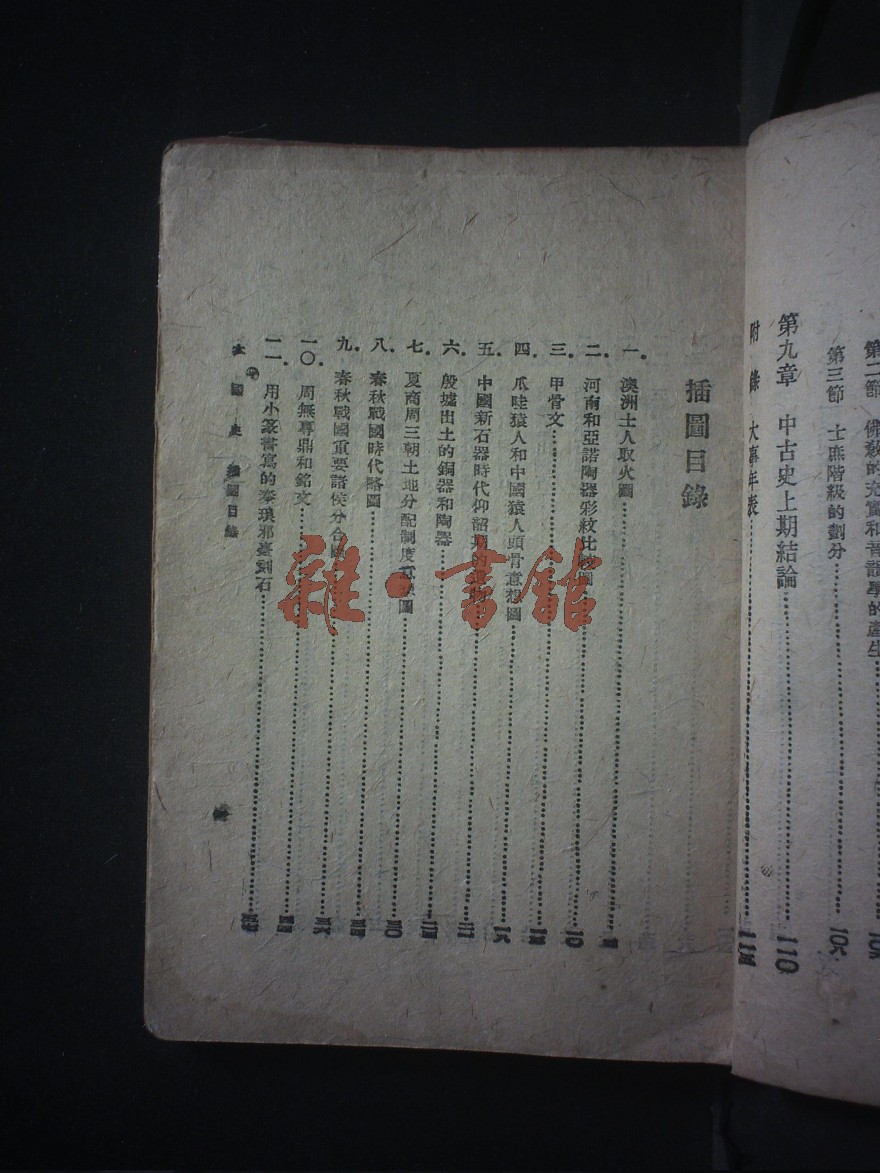 第二節　佛教的充實和音韻學的產生……10
第三節　士庶階級的劃分……10六
第九章　中古史上期結論……110
附錄　大事年表……11
插圖目錄
一．澳洲土人取火圖
二．河南和亞諾陶器彩紋比較圖……10
三．甲骨文
四．爪哇猿人和中國猿人頭骨意想圖
五．中國新石器時代仰韶期的
六．殷墟出土的銅器和陶器
七．夏商周三朝土地分配制度意想圖
八．春秋戰國時代略圖
九．春秋戰國重要諸侯分合圖
一〇．周無專鼎和銘文
一一．用小篆書寫的秦琅邪臺刻石
本國史　插圖目錄
雜·書館